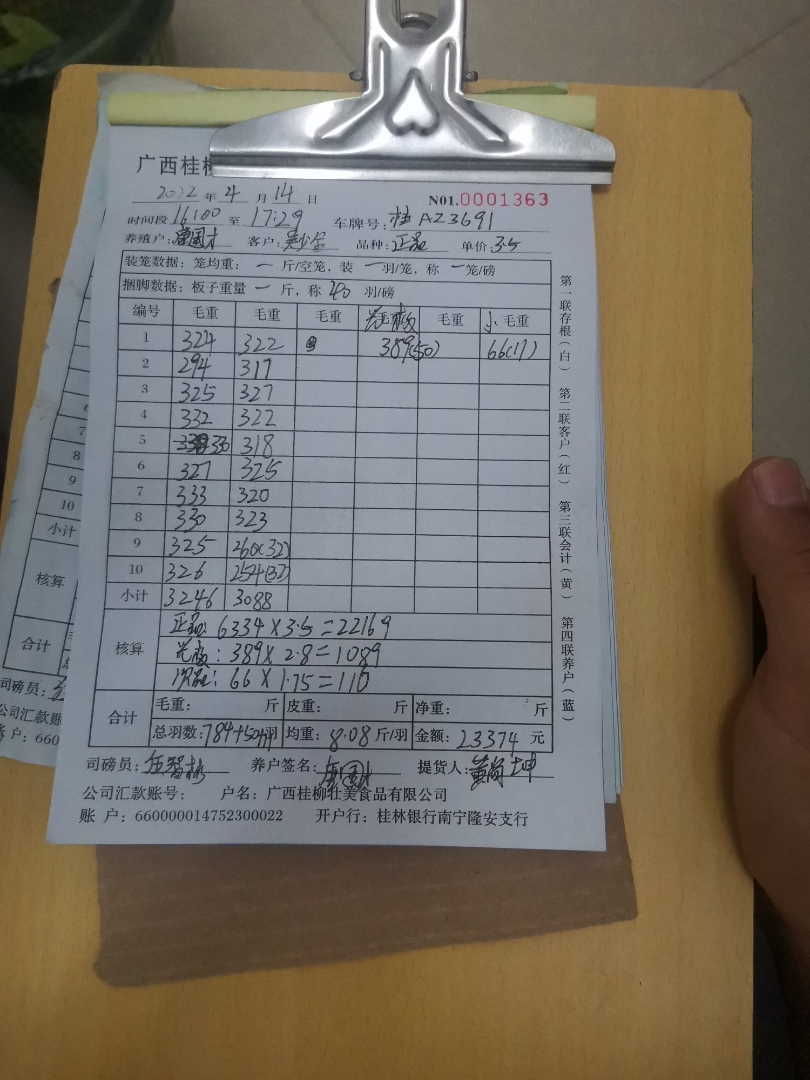 广西桂
2022 年 4 月 14 日 N01.0001363
时间段 16:00 至 17:29 车牌号: 桂AZ3691
养殖户: 国才 客户: 品种: 正品 单价: 3.5
装笼数据: 笼均重: 一 斤/空笼, 装 一 羽/笼, 称 一 笼/磅
捆脚数据: 板子重量 一 斤, 称 40 羽/磅
编号 毛重 毛重 毛重 毛重 毛重 小 毛重
1 324 322 389(50) 66(11)
2 294 317
3 325 327
4 332 322
5 330 318
6 327 325
7 333 320
8 330 323
9 325 260(32)
10 326 254(32)
小计 3246 3088
核算
正品: 6334×3.5=22169
光板: 389×2.8=1089
次品: 66×1.75=116
合计
毛重: 斤 皮重: 斤 净重: 斤
总羽数: 784+50+11羽 均重: 8.08 斤/羽 金额: 23374 元
司磅员: 养户签名: 提货人:
公司汇款账号: 户名: 广西桂柳壮美食品有限公司
账 户: 660000014752300022 开户行: 桂林银行南宁隆安支行
第一联存根(白) 第二联客户(红) 第三联会计(黄) 第四联养户(蓝)
7
8
9
10
小计
核算
合计
司磅员:
公司汇款账
账 户: 660